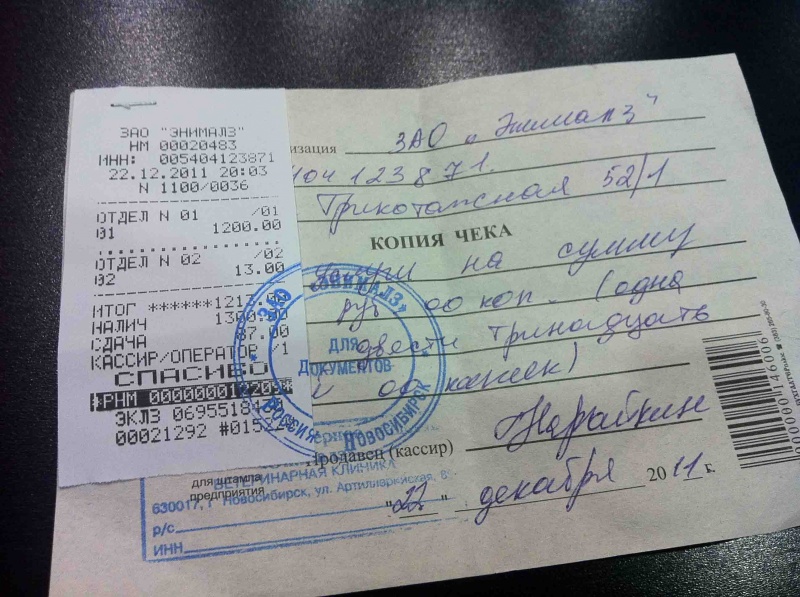 ЗАО "ЭНИМАЛЗ"
НМ 00020483
ИНН: 005404123871
22.12.2011 20:03
N 1100/0036
ОТДЕЛ N 01 /01
01 1200.00
ОТДЕЛ N 02 /02
02 13.00
ИТОГ ******1213.00
НАЛИЧ 1300.00
СДАЧА 87.00
КАССИР/ОПЕРАТОР /1
СПАСИБО
ЭКЛЗ 0695518
00021292 #0152
изация ЗАО „Энималз"
404123871.
Трикотажная 52/1
КОПИЯ ЧЕКА
на сумму
руб 00 коп. (одна
двести тринадцать
00 копеек)
Продавец (кассир)
для штампа
предприятия
"22" декабря 2011 г.
ЗАО «ЭНИМАЛЗ»
ДЛЯ
ДОКУМЕНТОВ
РОССИЯ НОВОСИБИРСК
ВЕТЕРИНАРНАЯ КЛИНИКА
630017, г Новосибирск, ул. Артиллерийская, 8
р/с
ИНН
0000000146006